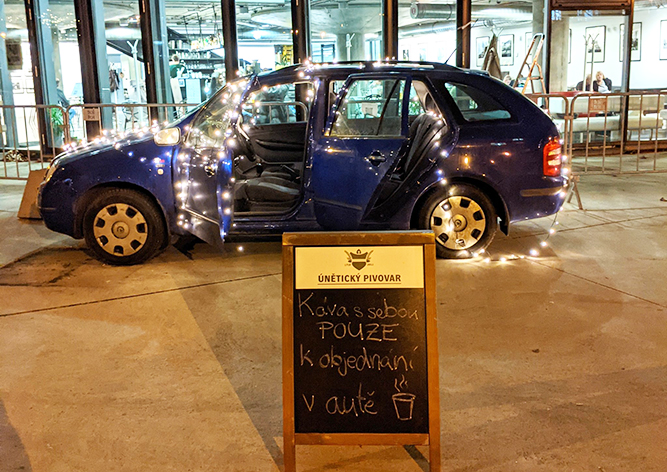 ÚNĚTICKÝ PIVOVAR
Káva s sebou
POUZE
k objednání
v autě